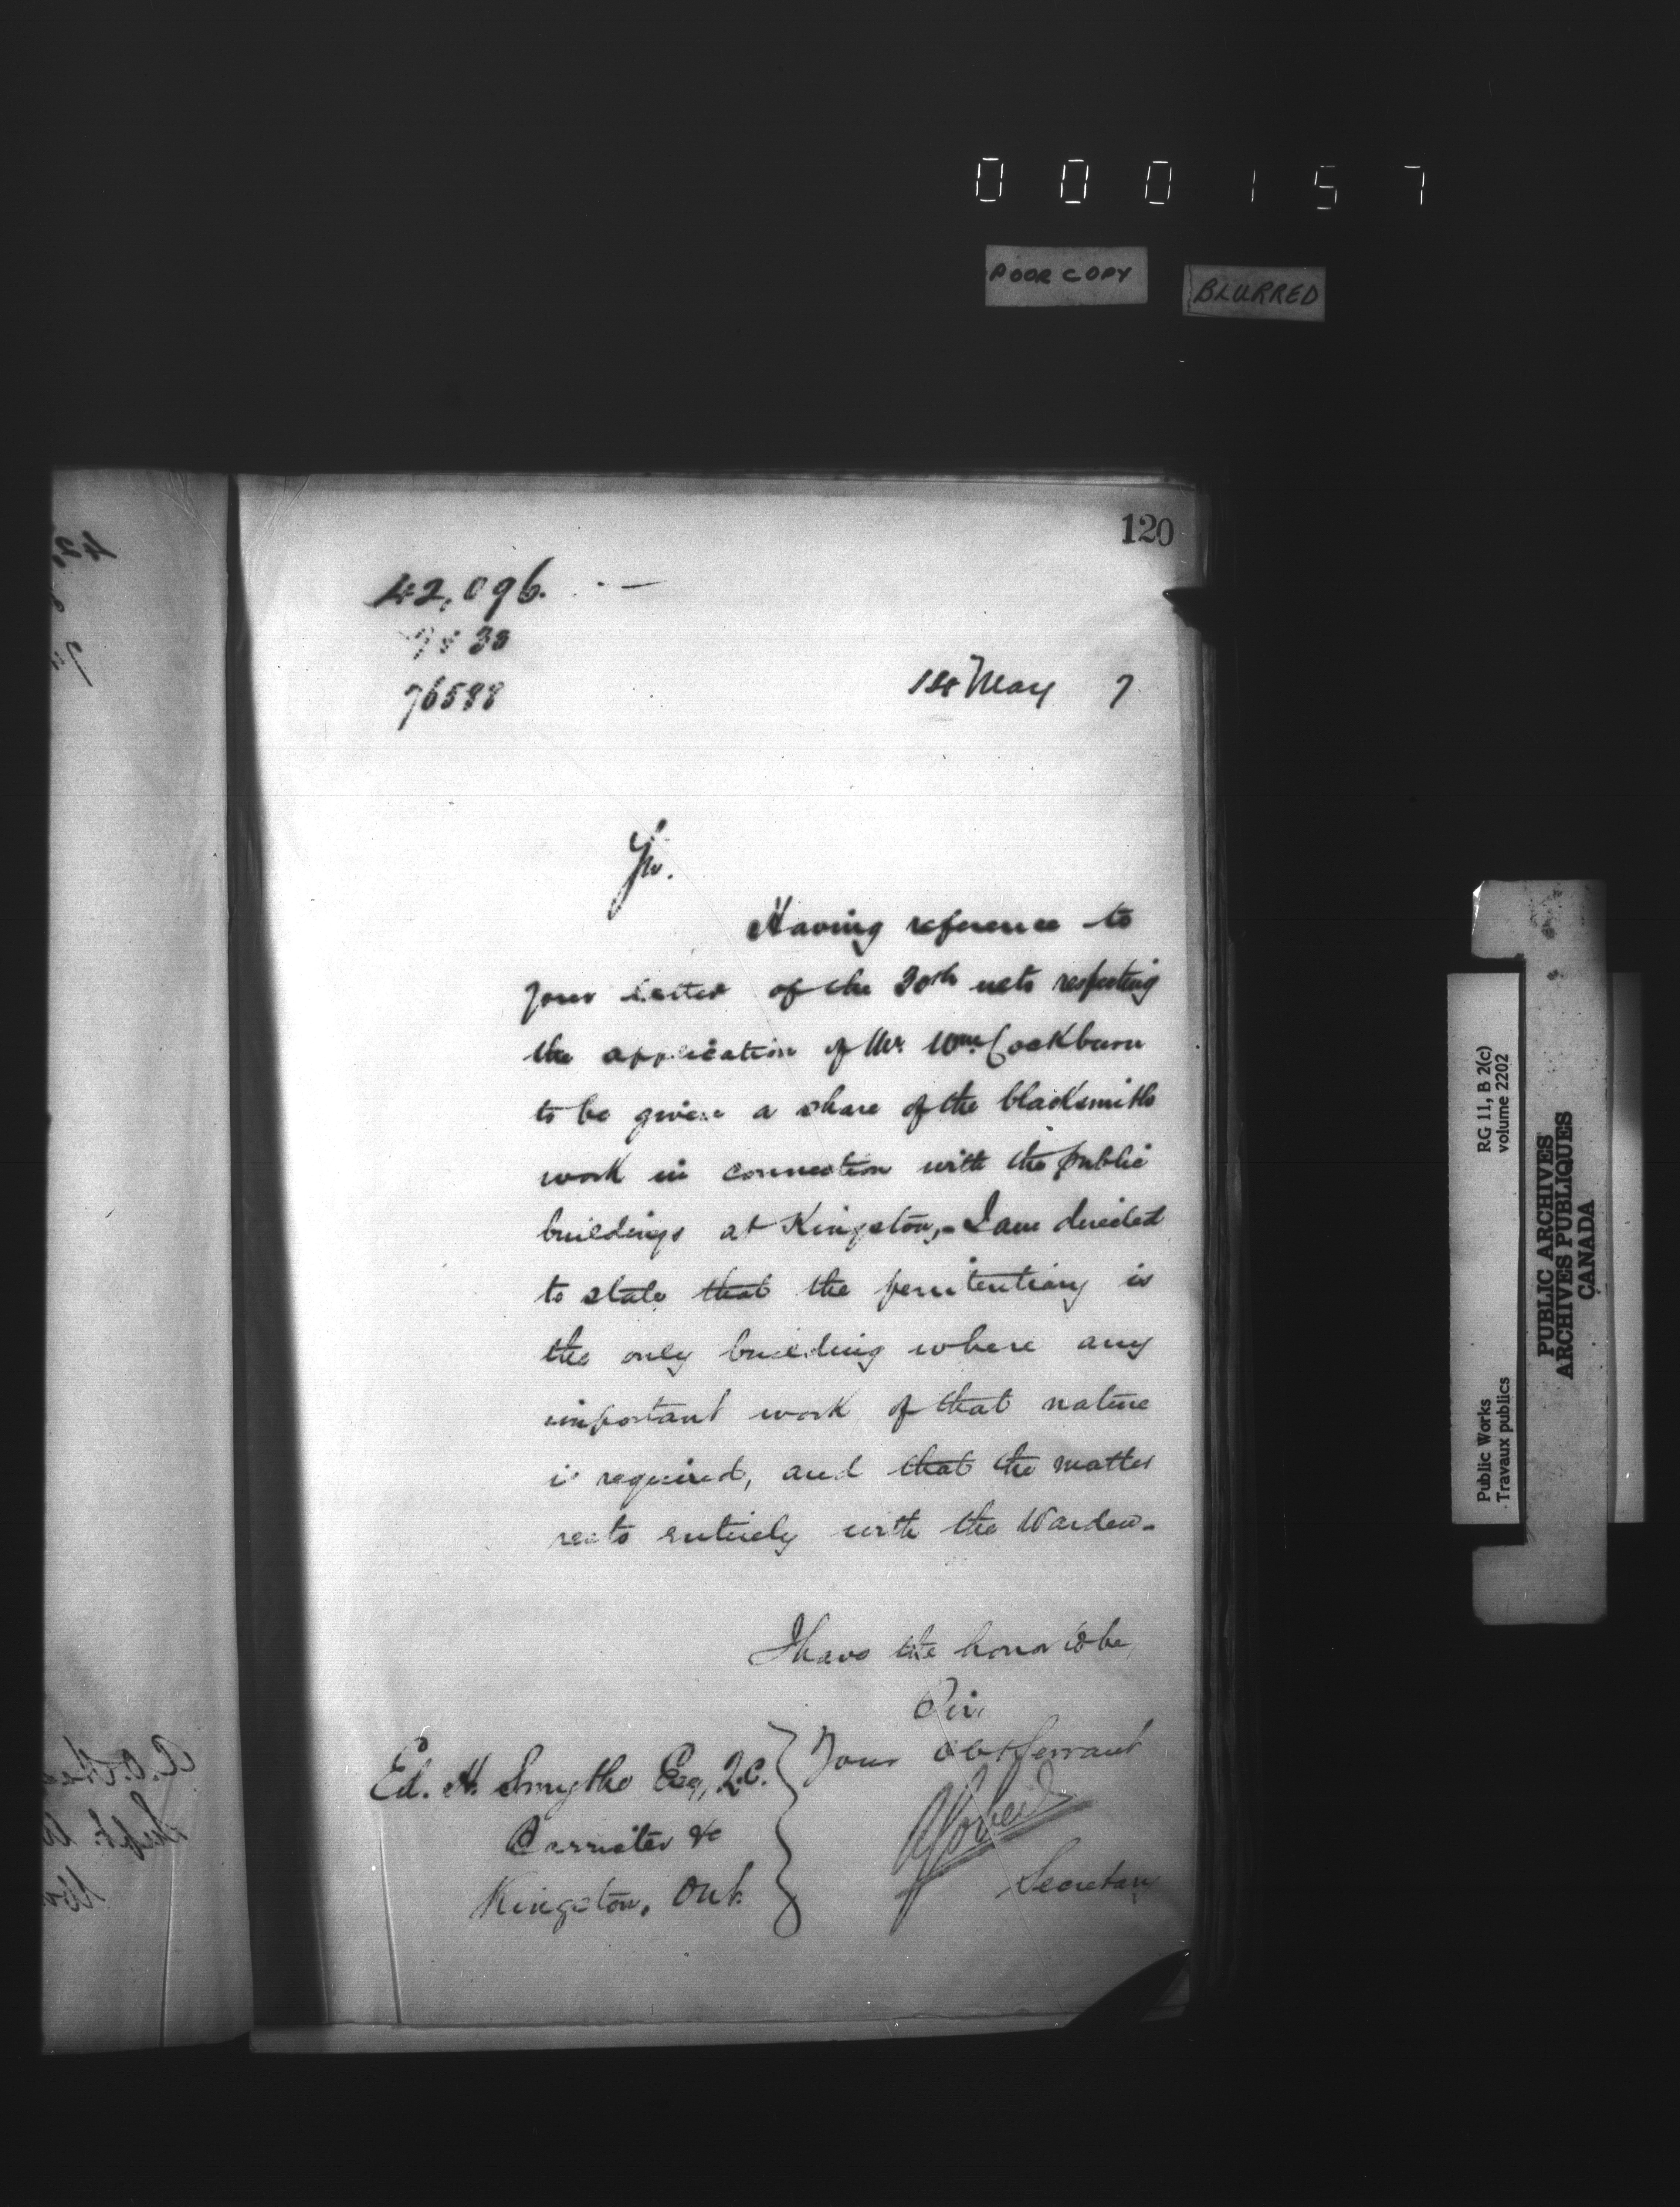 000157
POOR COPY
BLURRED
120
42,096.
76588
1st May 7
Sir.
Having reference to
your letter of the 30th ulto respecting
the application of Mr. Wm. Cockburn
to be given a share of the blacksmiths
work in connection with the public
buildings at Kingston,- I am directed
to state that the penitentiary is
the only building where any
important work of that nature
is required, and that the matter
rests entirely with the Warden-
I have the honor to be,
Sir,
Your obt Servant
Secretary
Ed. H. Smythe Esq, Q.C.
Barrister &c
Kingston, Ont.
Public Works
Travaux publics
RG 11, B 2(c)
volume 2202
PUBLIC ARCHIVES
ARCHIVES PUBLIQUES
CANADA